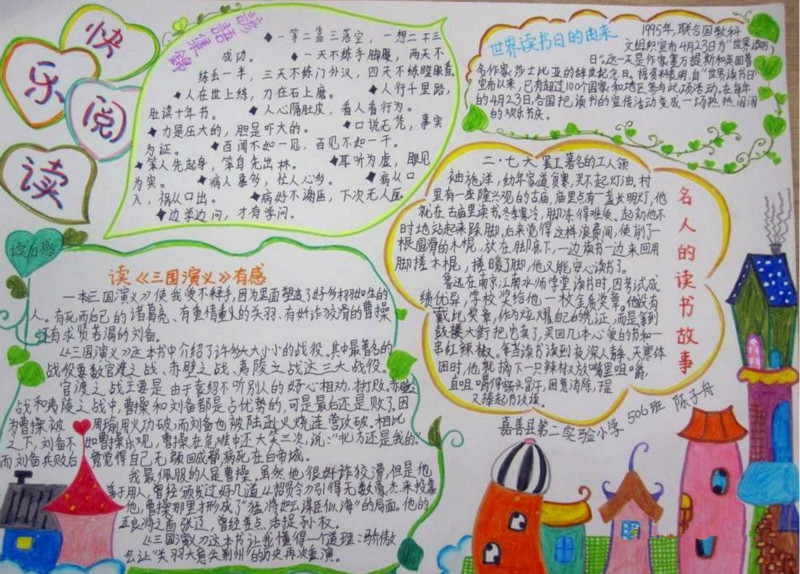 快
乐
阅
读
谚语集锦
◆一等二靠三落空，一想二干三
成功。 ◆一天不练手脚慢，两天不
练丢一半，三天不练门外汉，四天不练瞪眼看。
◆人在世上练，刀在石上磨。 ◆人行千里路，
胜读十年书。 ◆人心隔肚皮，看人看行为。
◆力是压大的，胆是吓大的。 ◆口说无凭，事实
为证。 ◆百闻不如一见，百见不如一干。
◆笨人先起身，笨鸟先出林。 ◆耳听为虚，眼见
为实。 ◆病人事多， ◆病从口
入，祸从口出。 ◆病好不谢医，下次无人医
◆边学边问，才有学问。
世界读书日的由来
1995年，联合国教科
文组织宣布4月23日为“世界读书
日”。这一天是作家塞万提斯和英国著
名作家莎士比亚的辞世纪念日。自“世界读书日”
宣布以来，已有超过100个国家和地区参与此项活动。在每年
的4月23日，各国把读书的宣传活动变成一场热热闹闹
的欢乐节庆。
名人的读书故事
二·七大罢工著名的工人领
袖施洋，幼年家道贫寒，买不起灯油，村
里有一座隆兴观的古庙，庙里点有一盏长明灯，他
就在古庙里读书。冬季寒冷，脚冻得难受，起初他不
时地站起来跺脚，后来觉得这样浪费时间，便削了一
根圆滑的木棍，放在脚底下，一边读书一边来回用
脚搓木棍，搓暖了脚，他又能安心读书了。
鲁迅在南京江南水师学堂读书时，因考试成
绩优异，学校奖给他一枚金质奖章。他没有
戴此奖章，作为炫耀自己的凭证，而是拿到
鼓楼大街把它卖了，买回几本心爱的书和一
串红辣椒。每当读书读到夜深人静、天寒体
困时，他就摘下一只辣椒，放嘴里咀嚼，
直咀嚼得额头冒汗，困意消除，于是
又捧起书攻读。
嘉善县第二实验小学 506班 陈子舟
读后感
读《三国演义》有感
一本《三国演义》使我爱不释手，因为里面塑造了好多栩栩如生的
人。有死而后已的诸葛亮、有重情重义的关羽、有奸诈狡滑的曹操
还有求贤若渴的刘备。
《三国演义》这本书中介绍了许多大大小小的战役。其中最著名的
战役要数官渡之战、赤壁之战、夷陵之战这三大战役。
官渡之战主要是由于袁绍不听别人的好心相劝，才打败。赤壁之
战和夷陵之战中，曹操和刘备都是占优势的，可是最后还是败了。因
为曹操被周瑜用火功破，而刘备也被陆逊火烧连营攻破。相比
之下，刘备不如曹操乐观，曹操在危难中还大笑三次，说：“北方还是我的。”
而刘备兵败后，觉得自己无颜回成都，病死在白帝城。
我最佩服的人是曹操，虽然他很奸诈狡滑，但是他
善于用人，曾经颁发过好几道《招贤令》，引得无数豪杰来投靠
他，曹操那里才形成了“猛将如云，谋臣似海”的局面。他的
五良将之首张辽，曾经差点活捉孙权。
《三国演义》这本书让我懂得一个道理：骄傲
会让“关羽大意失荆州”的历史再次重演。